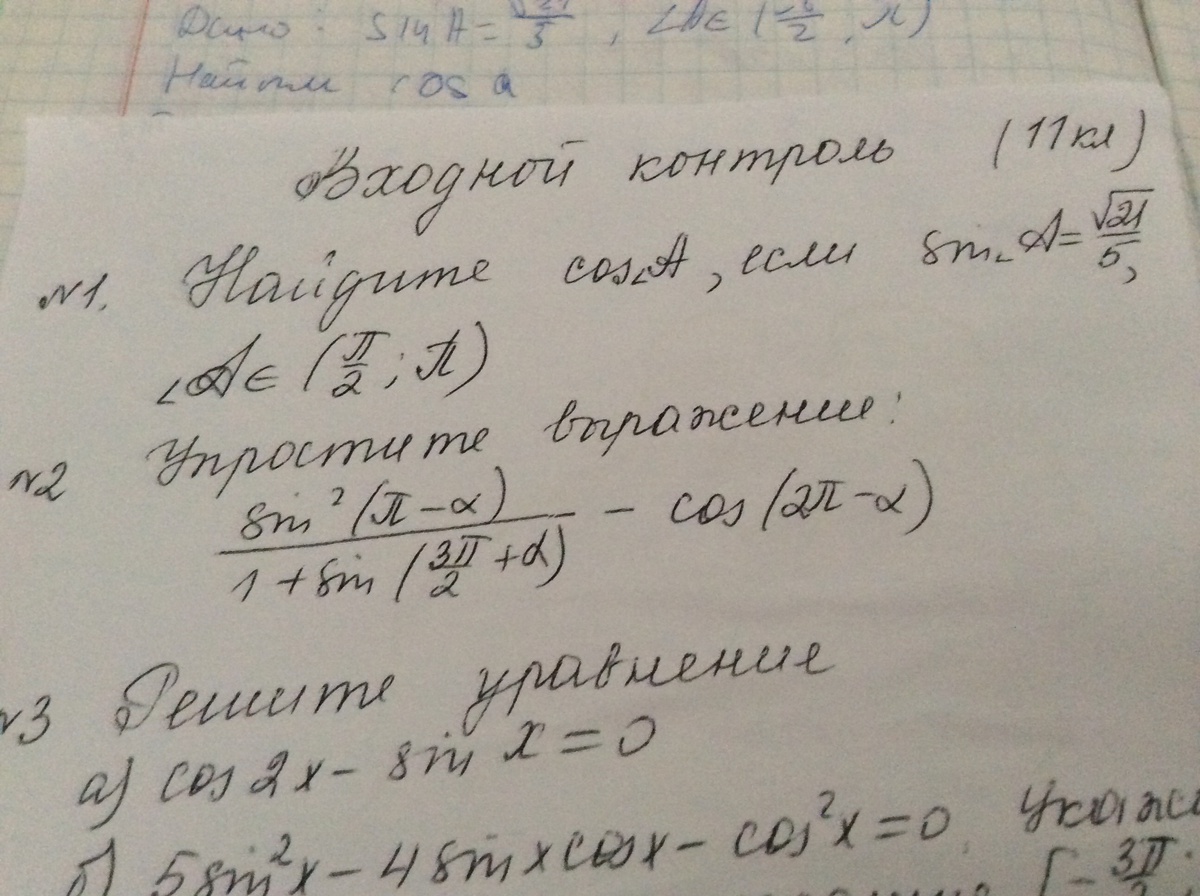 Дано: sin A = √21/5, ∠A ∈ (π/2, π)
Найти cos α
Входной контроль (11 кл)
№1. Найдите cos∠A, если sin∠A = √21/5,
∠A ∈ (π/2; π)
№2 Упростите выражение:
sin²(π-α)/(1+sin(3π/2+α)) - cos(2π-α)
№3 Решите уравнение
а) cos2x - sin x = 0
б) 5sin²x - 4sinxcosx - cos²x = 0
[-3π/2